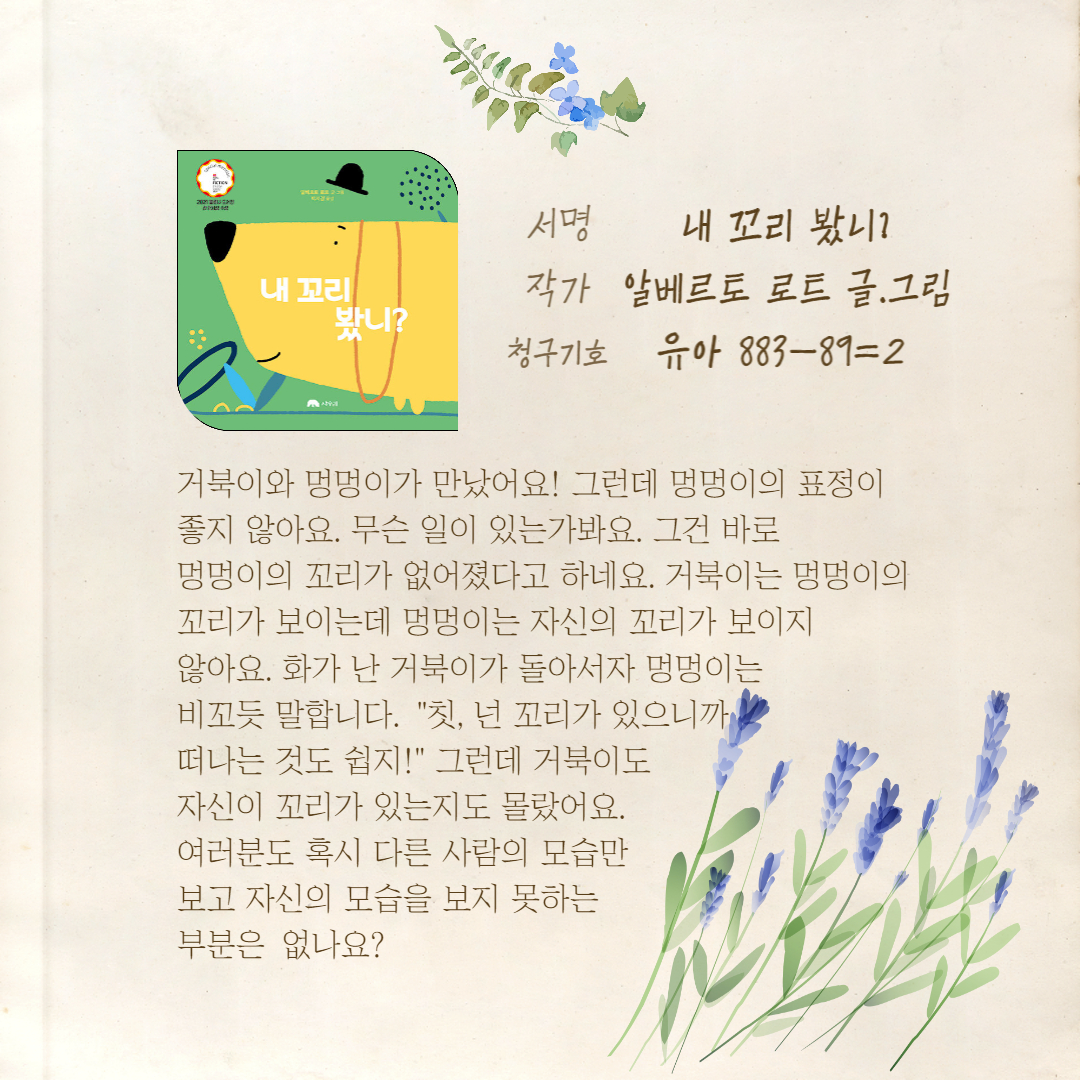 내 꼬리
봤니?
서명 내 꼬리 봤니?
작가 알베르토 로트 글.그림
청구기호 유아 883-89=2
거북이와 멍멍이가 만났어요! 그런데 멍멍이의 표정이
좋지 않아요. 무슨 일이 있는가봐요. 그건 바로
멍멍이의 꼬리가 없어졌다고 하네요. 거북이는 멍멍이의
꼬리가 보이는데 멍멍이는 자신의 꼬리가 보이지
않아요. 화가 난 거북이가 돌아서자 멍멍이는
비꼬듯 말합니다. "칫, 넌 꼬리가 있으니까
떠나는 것도 쉽지!" 그런데 거북이도
자신이 꼬리가 있는지도 몰랐어요.
여러분도 혹시 다른 사람의 모습만
보고 자신의 모습을 보지 못하는
부분은 없나요?